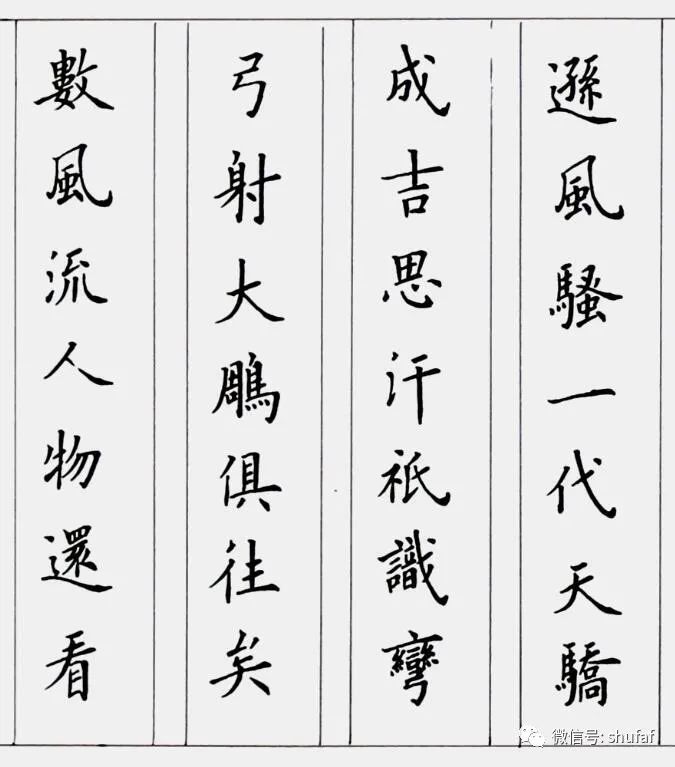 遜風騷一代天驕
成吉思汗祇識彎
弓射大鵰俱往矣
數風流人物還看
微信号: shufaf